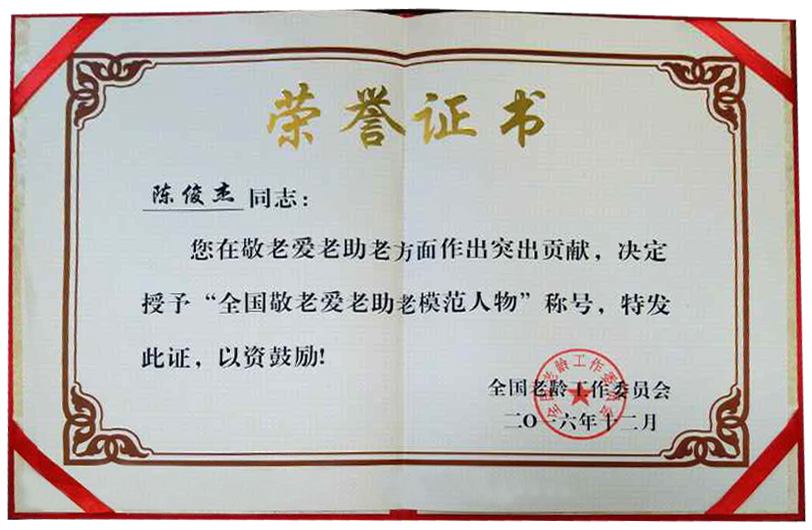 荣誉证书
陈俊杰 同志：
您在敬老爱老助老方面作出突出贡献，决定
授予“全国敬老爱老助老模范人物”称号，特发
此证，以资鼓励!
全国老龄工作委员会
二〇一六年十二月
全国老龄工作委员会